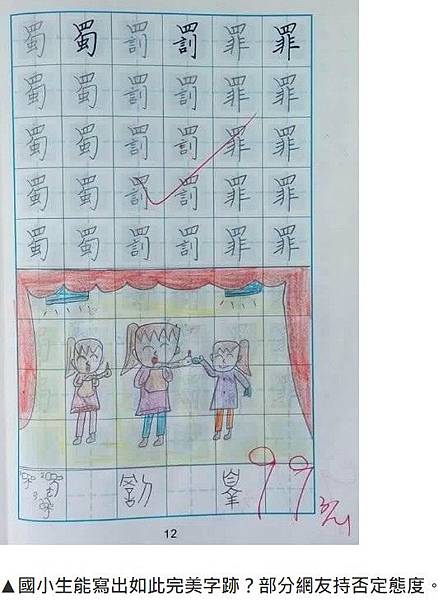 蜀 蜀 罰 罰 罪 罪
蜀 蜀 罰 罰 罪 罪
蜀 蜀 罰 罰 罪 罪
蜀 蜀 罰 罰 罪 罪
蜀 蜀 罰 罰 罪 罪
99
12
▲國小生能寫出如此完美字跡？部分網友持否定態度。